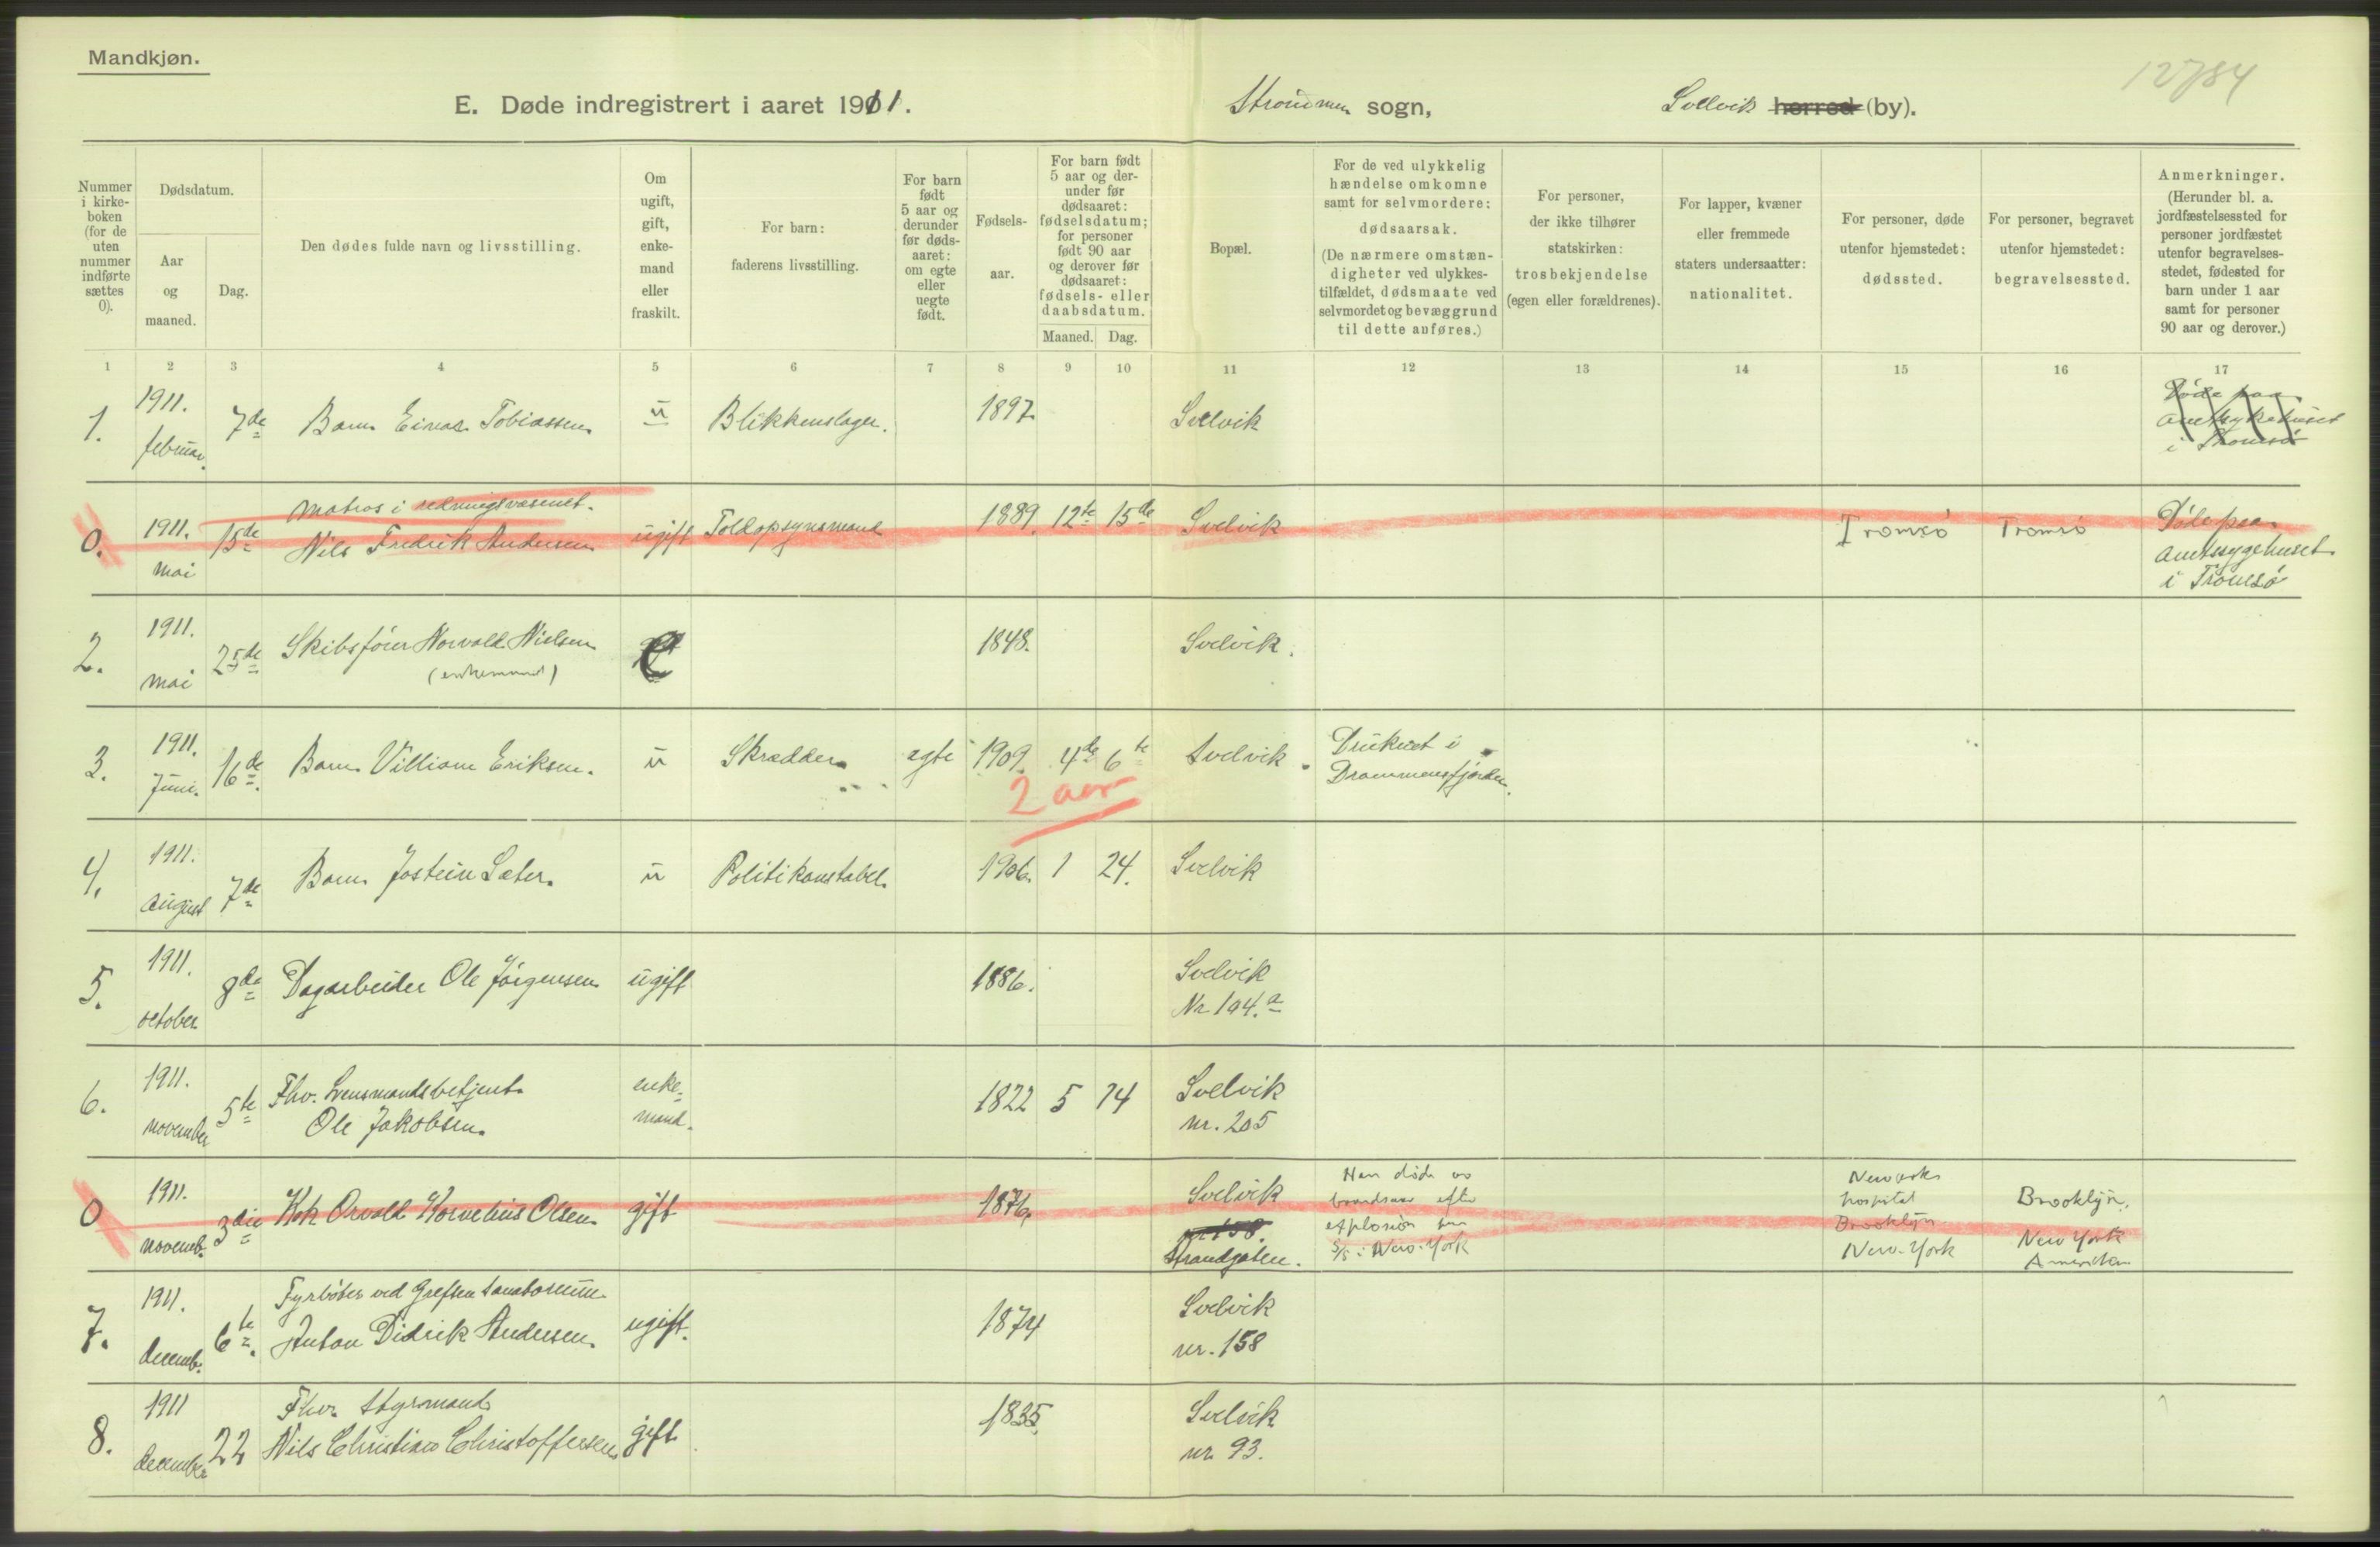 Mandkjøn.
12784
E. Døde indregistrert i aaret 1911. Strømmen sogn, Svelvik herred (by).
Nummer i kirke-boken (for de uten nummer indførte sættes 0).
Dødsdatum.
Aar og maaned.
Dag.
Den dødes fulde navn og livsstilling.
Om ugift, gift, enke-mand eller fraskilt.
For barn: faderens livsstilling.
For barn født 5 aar og derunder før døds-aaret: om egte eller uegte født.
Fødsels-aar.
For barn født 5 aar og der-under før dødsaaret: fødselsdatum; for personer født 90 aar og derover før dødsaaret: fødsels- eller daabsdatum.
Maaned. Dag.
Bopæl.
For de ved ulykkelig hændelse omkomne samt for selvmordere: dødsaarsak. (De nærmere omstæn-digheter ved ulykkes-tilfældet, dødsmaate ved selvmordet og bevæggrund til dette anføres.)
For personer, der ikke tilhører statskirken: trosbekjendelse (egen eller forældrenes).
For lapper, kvæner eller fremmede staters undersaatter: nationalitet.
For personer, døde utenfor hjemstedet: dødssted.
For personer, begravet utenfor hjemstedet: begravelsessted.
Anmerkninger. (Herunder bl. a. jordfæstelsessted for personer jordfæstet utenfor begravelses-stedet, fødested for barn under 1 aar samt for personer 90 aar og derover.)
1 2 3 4 5 6 7 8 9 10 11 12 13 14 15 16 17
1. 1911. februar. 7de Barn Einar Tobiassen. u Blikkenslager. 1897. Svelvik
Døde paa Amtssykehuset i Tromsø
0. 1911. mai 15de Matros i redningsvæsenet. Nils Fredrik Andersen ugift Toldopsynsmand 1889. 12te 15de Svelvik Tromsø Tromsø Døde paa Amtssygehuset i Tromsø
2. 1911. mai 25de Skibsfører Norvald Nielsen (enkemand) e 1848. Svelvik.
3. 1911. Juni. 16de Barn Villiam Eriksen. u Skrædder egte 1909. 4de 6te Svelvik Druknet i Drammensfjorden.
2 aar
4. 1911. August 7de Barn Jostein Sæter. u Politikonstabel. 1906. 1 24. Svelvik
5. 1911. october 8de Dagarbeider Ole Jørgensen ugift 1886. Svelvik Nr 194.a
6. 1911. november 5te Fhv. Lensmandsbetjent. Ole Jakobsen. enke-mand. 1822 5 14 Svelvik nr. 205
0 1911. novemb. 3die Kok Orvald Kornelius Olsen gift 1876. Svelvik nr 158. Strandgaten. Han døde av brandsaar efter explosion S/S i New-York hospital Brooklyn New-York Brooklyn, New York Amerika
7. 1911. decemb. 6te. Fyrbøter ved Grefsen sanatorium Anton Didrik Andersen. ugift. 1874 Svelvik nr. 158
8. 1911 december 22 Fhv. Styrmand Nils Christian Christoffersen gift 1835. Svelvik nr. 93.